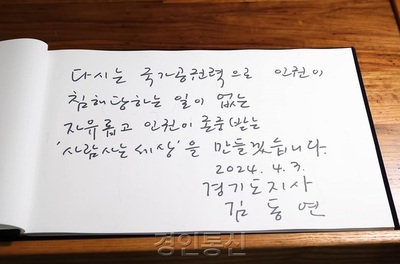 다시는 국가공권력으로 인권이
침해당하는 일이 없는
자유롭고 인권이 존중받는
'사람사는 세상'을 만들겠습니다.
2024. 4. 3.
경기도지사
김동연
경인통신